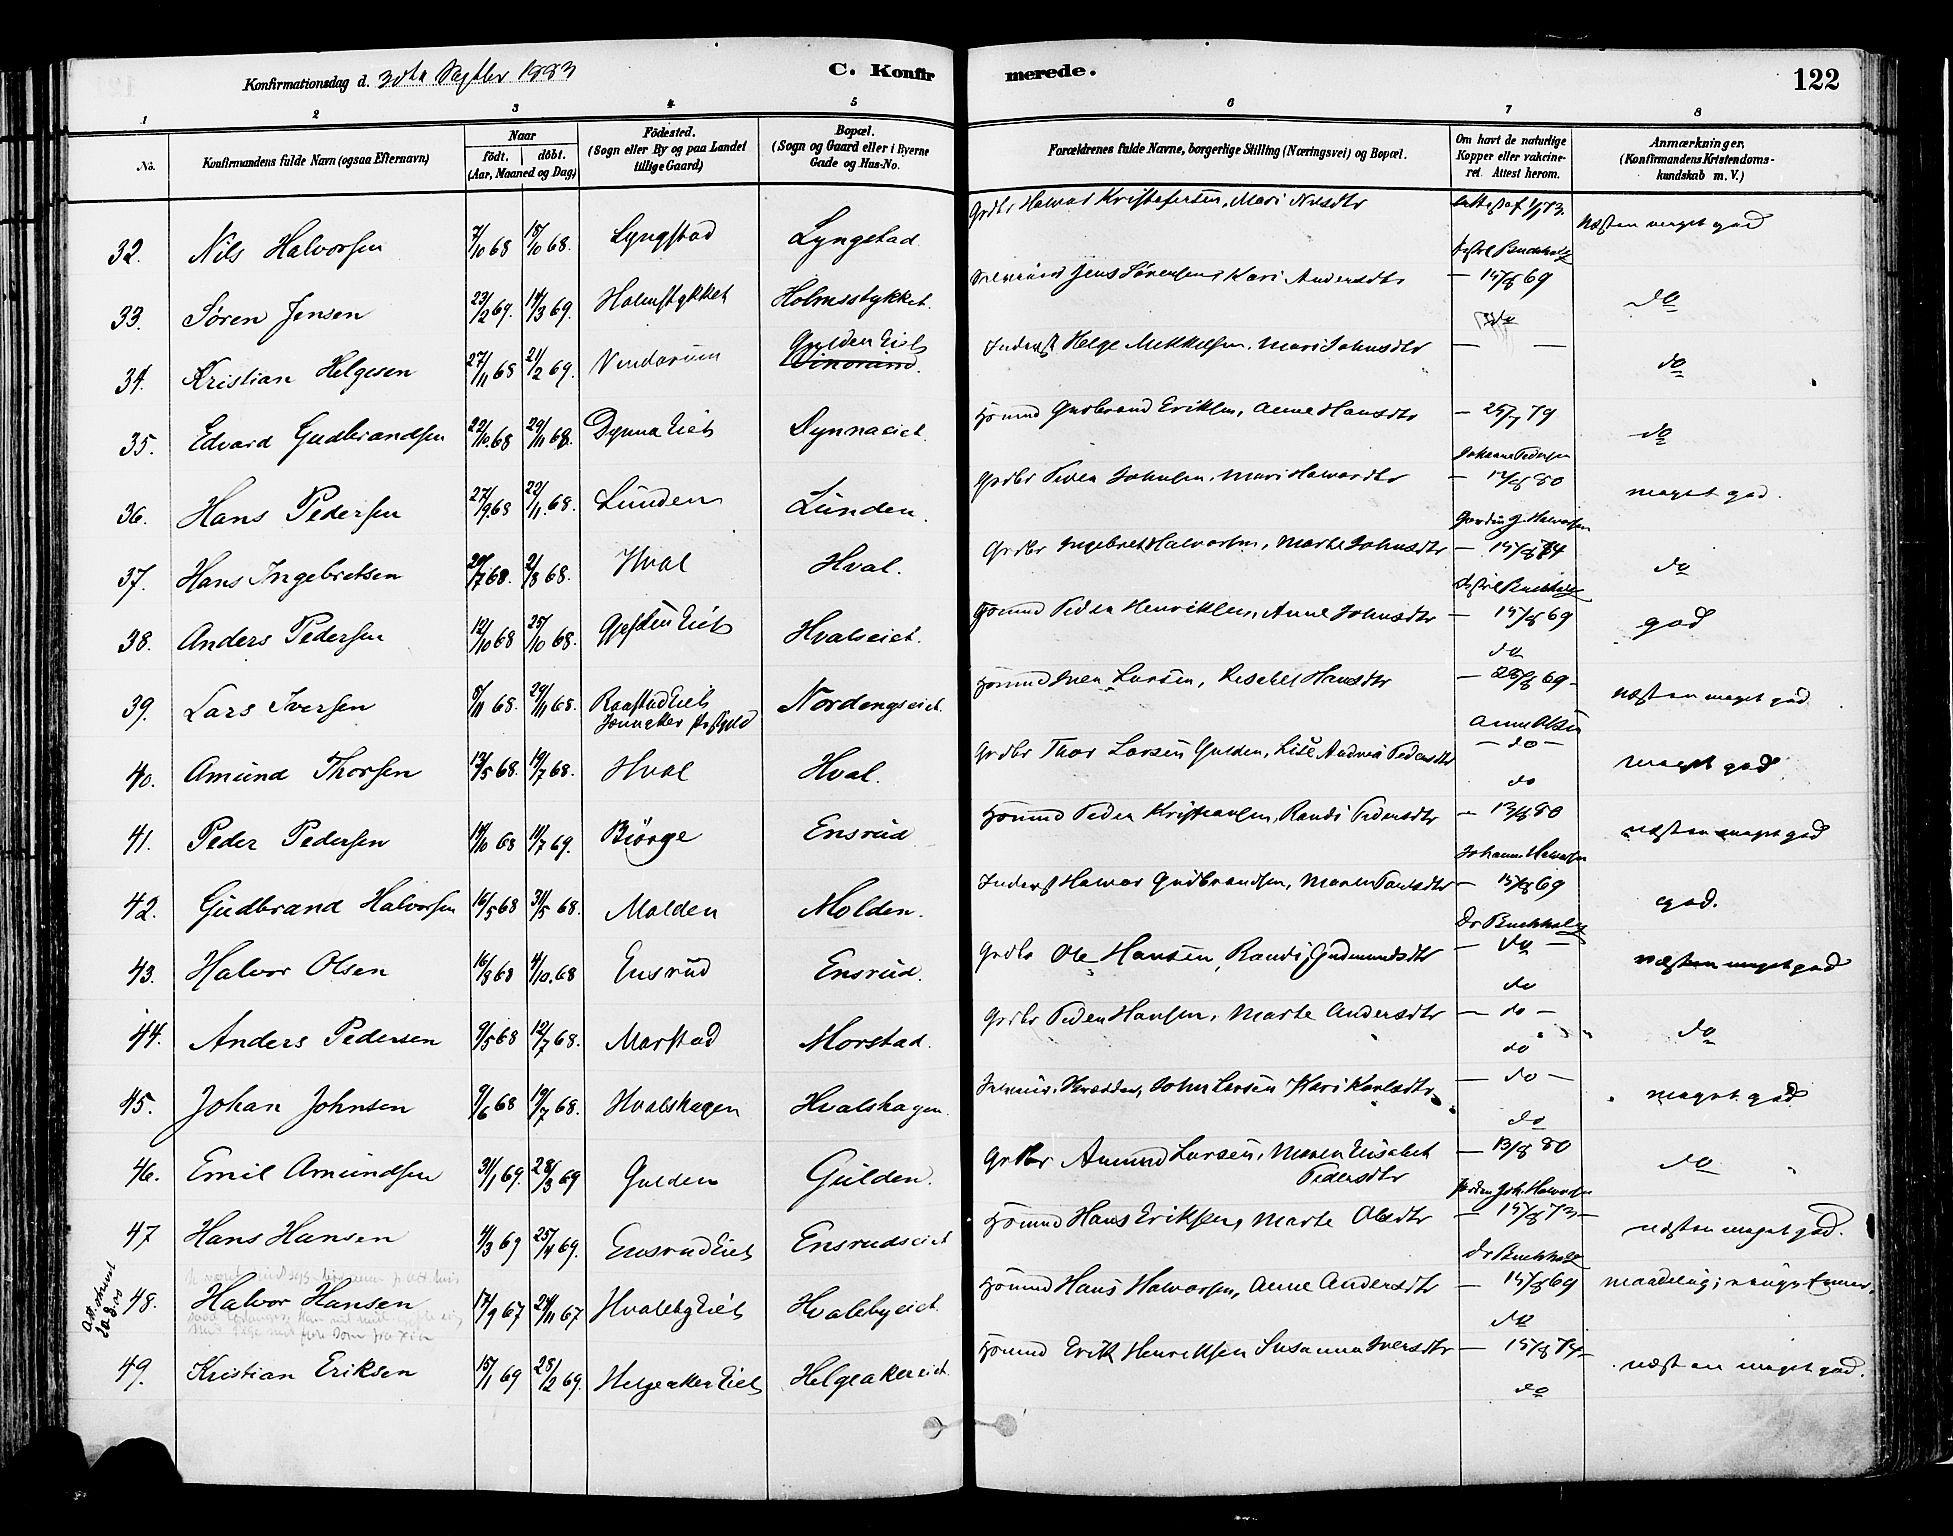 Konfirmationsdag d. 30te Septbr 1883
C. Konfirmerede.
122
1 2 3 4 5 6 7 8
No.
Konfirmandens fulde Navn (ogsaa Efternavn)
Naar
født. døbt.
(Aar, Maaned og Dag)
Födested.
(Sogn eller By og paa Landet
tillige Gaard)
Bopæl.
(Sogn og Gaard eller i Byerne
Gade og Hus-No.
Forældrenes fulde Navne, borgerlige Stilling (Næringsvei) og Bopæl.
Om havt de naturlige
Kopper eller vakcine-
ret. Attest herom.
Anmærkninger,
(Konfirmandens Kristendoms-
kundskab m. V.)
32. Nils Halvorsen 7/10 68 18/10 68. Lyngstad Lyngstad Grdbr Halvor Kristofersen, Mari Nilsdtr Næsten meget god
33. Søren Jensen 23/2 69. 14/3 69. Holmstykket Holmsstykket. Jens Sørensen, Kari Andersdtr — 15/8 69 do
34. Kristian Helgesen 27/11 68 21/2 69. Gulden Eiet Inderst Helge Mikkelsen, Mari Johnsdtr — — do
35. Edvard Gudbrandsen 22/10 68 29/11 68. Dynna Eiet Dynnaeiet. Husmd Gudbrand Eriksen, Anne Hansdtr — 25/7 79 do
Johanne Pedersen
36. Hans Pedersen 27/9 68 22/11 68. Lunden Lunden. Grdbr Peder Johnsen, Mari Halvordtr meget god.
37. Hans Ingebretsen 2/8 68. Hval Hval. Grdbr Ingebret Halvorsen, Marte Johnsdtr — 15/8 74 do
Distrl Buchholz
38. Anders Pedersen 12/10 68 25/10 68. Eiet Hvalseiet Husmd Peder Henriksen, Anne Johnsdtr — 15/8 69 god
do
39. Lars Iversen 8/11 68. 29/11 68. Raastad Eiet Nordengseiet. Husmd Iver Larsen, Lisabet Hansdtr — 28/8 69 — næsten meget god
Jevnaker Præstgjeld
Anne Olsen
40. Amund Thorsen 13/5 68. 19/7 68. Hval Hval. Grdbr Thor Larsen Gulden, Lise Andrea Pedersdtr — do — meget god
do
41. Peder Pedersen 11/7 69. Biørge Ensrud Husmd Peder Kristiansen, Randi Pedersdtr — 13/8 80 næsten meget god
Johanne Halvorsen
42. Gudbrand Halvorsen 16/5 68 31/5 68. Molden Molden. Inderst Halvor Gudbrandsen, Maren Paulsdtr — 15/8 69 god.
Dr Buchholz
43. Halvor Olsen 16/8 68 4/10 68 Ensrud Ensrud. Grdbr Ole Hansen, Randi Gudmundsdtr — do — næsten meget god
do
44. Anders Pedersen 9/5 68 12/7 68. Morstad Morstad. Grdbr Peder Hansen, Marte Andersdtr — do — do
do
45. Johan Johnsen 9/6 68 19/7 68. Hvalshagen Hvalshagen John Larsen, Kari Karlsdtr — do — meget god
do
46. Emil Amundsen 31/1 69. 28/3 69 Gulden Gulden. Grdbr Amund Larsen, Maren Elisabet — 13/8 80 do
Pedersdtr
47 Hans Hansen 4/3 69 25/4 69. Ensrud Eiet Ensrudseiet Husmd Hans Eriksen, Marte Olsdtr — 15/8 73 — næsten meget god.
Dr Buchholz
48. Halvor Hansen 17/9 67 24/11 67 Hvaleby Eiet Hvalebyeiet. Husmd Hans Halvorsen, Anne Andersdtr — 15/8 69
do
49. Kristian Eriksen 15/1 69 28/2 69. Helgeaker Eiet Helgeakereiet. Husmd Erik Henriksen Susanna Iversdtr — 15/8 74 — næsten meget god.
do